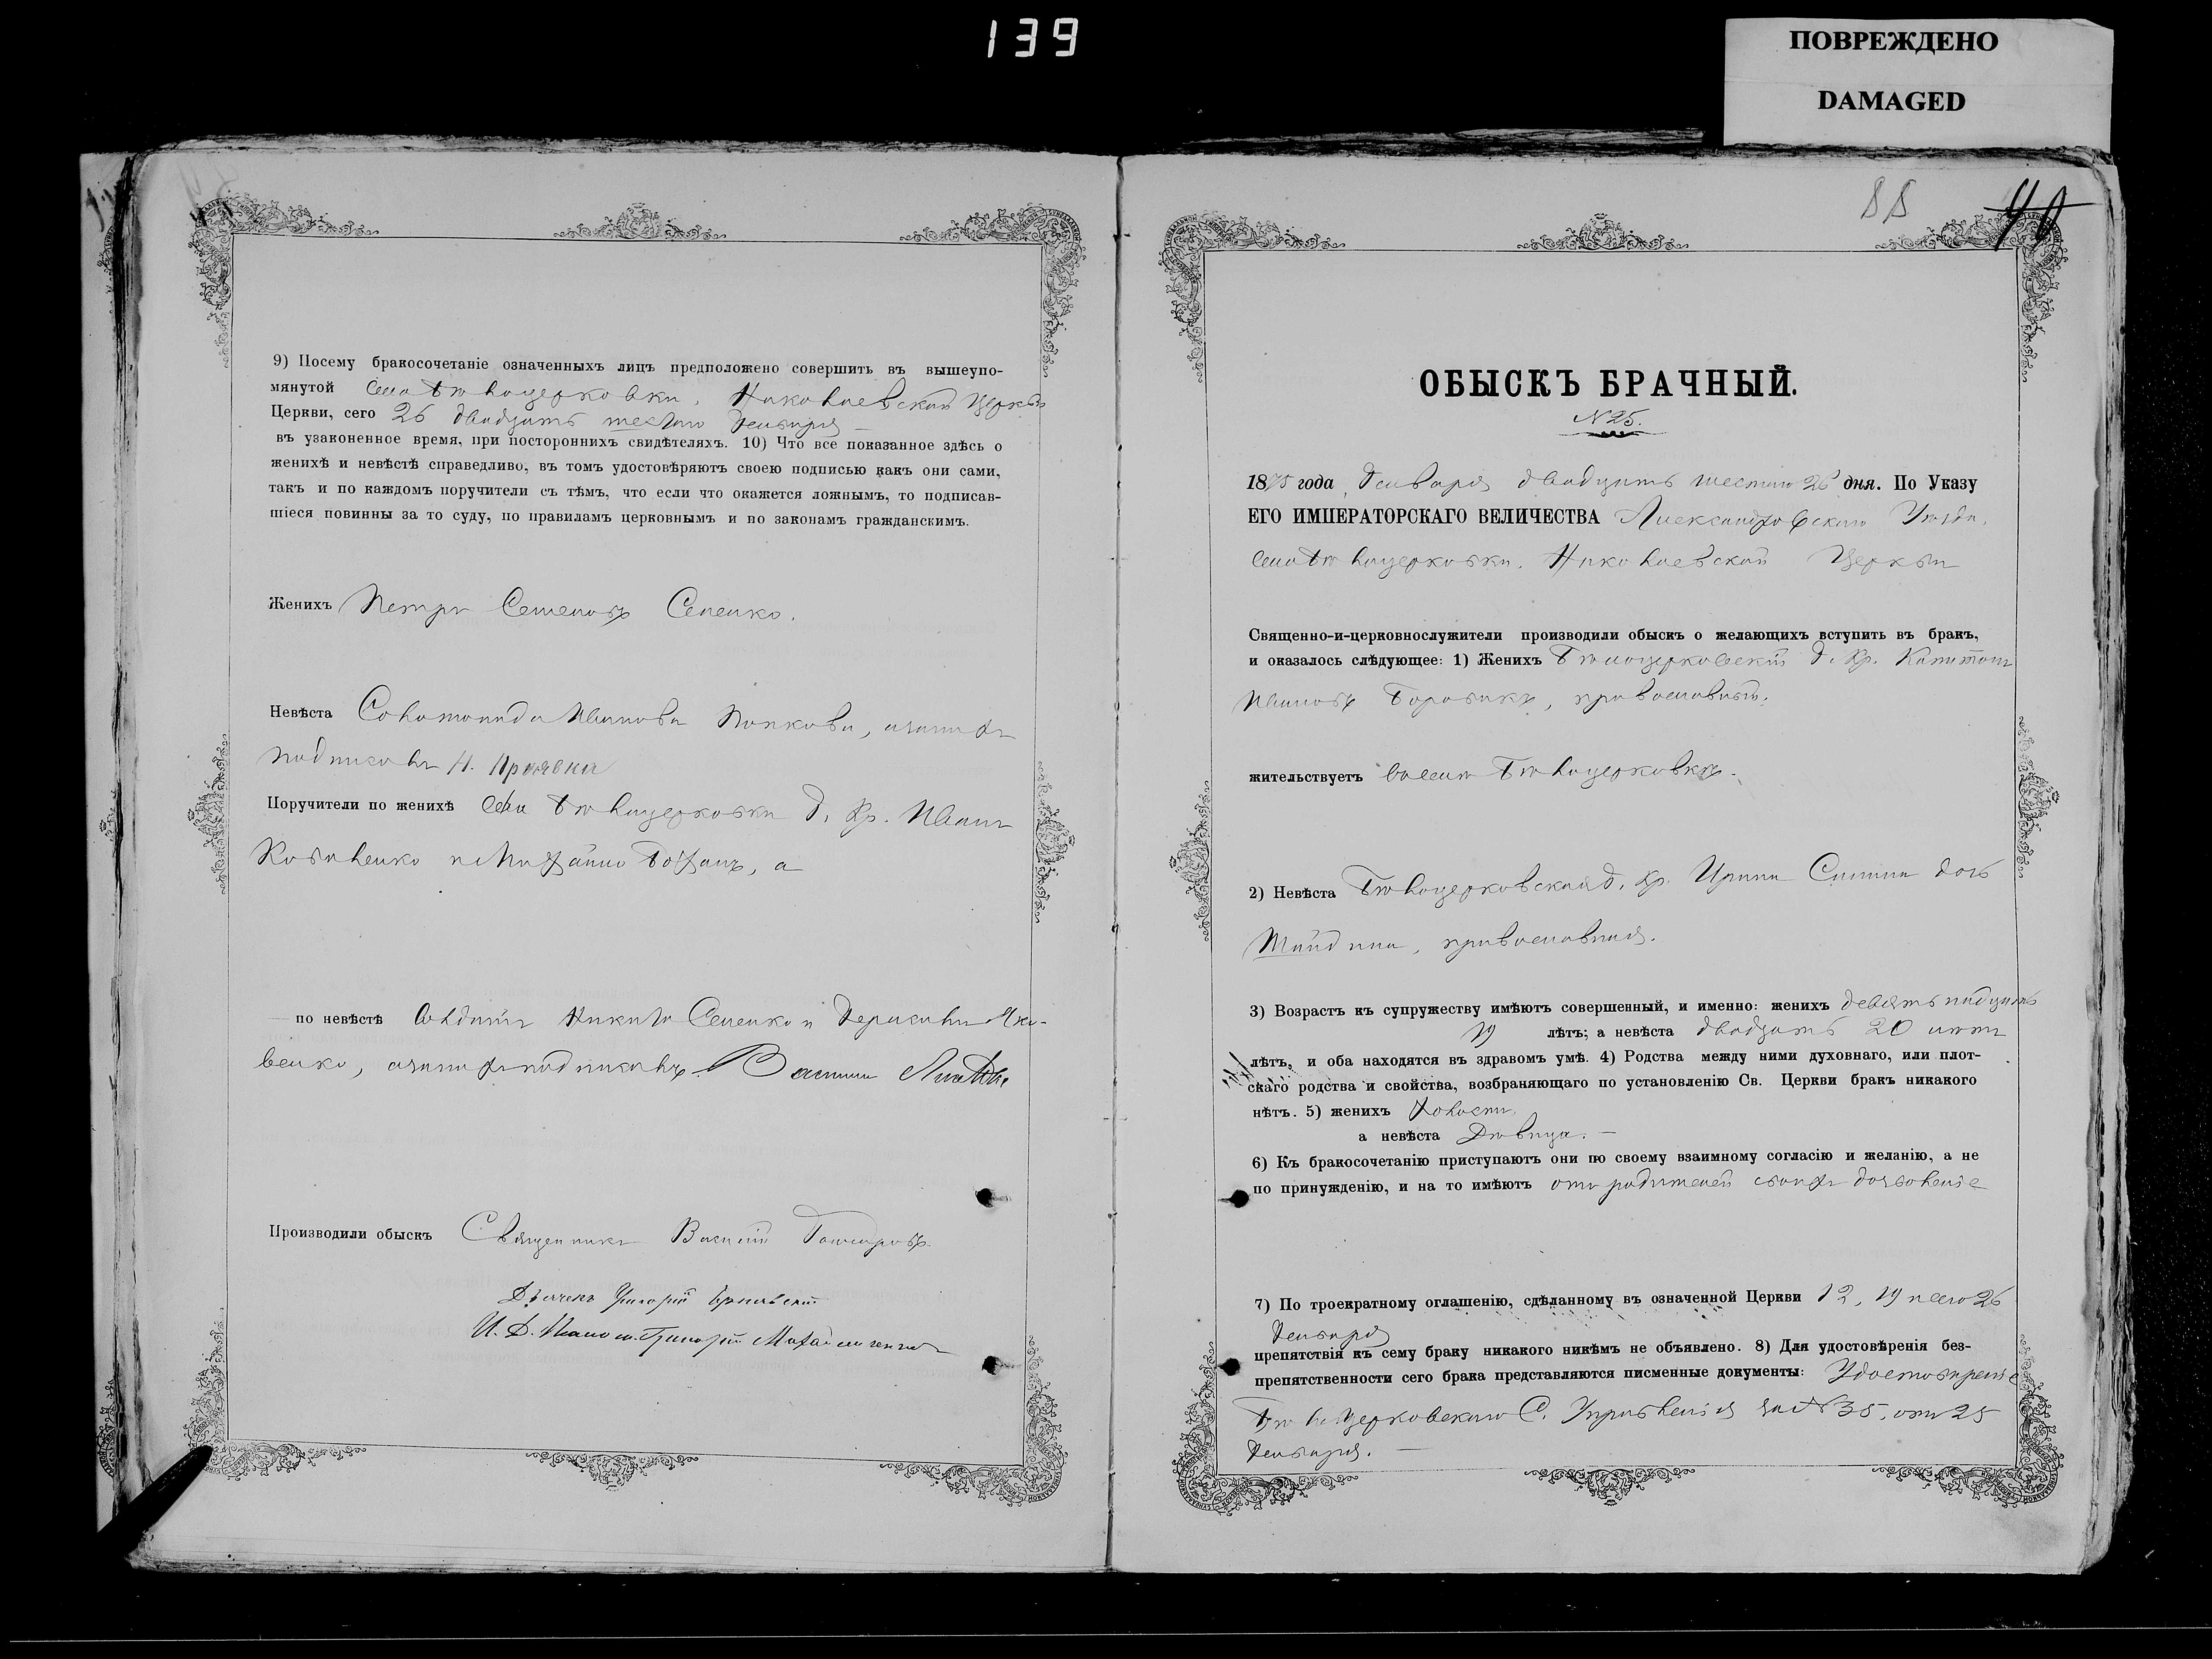 139
ПОВРЕЖДЕНО
DAMAGED
9) Посему бракосочетаніе означенныхъ лицъ предположено совершить въ вышеупо-
мянутой Села Бѣлоцерковки, Николаевской Церкви
Церкви, сего 26 двадцать шестого Генваря
въ узаконенное время, при постороннихъ свидѣтеляхъ. 10) Что все показанное здѣсь о
женихѣ и невѣстѣ справедливо, въ томъ удостовѣряютъ своею подписью какъ они сами,
такъ и по каждомъ поручители съ тѣмъ, что если что окажется ложнымъ, то подписав-
шіеся повинны за то суду, по правиламъ церковнымъ и по законамъ гражданскимъ.
Женихъ Петръ Семеновъ Сененко.
Невѣста Соломонида Иванова Попкова, а за них
подписалъ Н.
Поручители по женихѣ Села Бѣлоцерковки Г. Кр. Иванъ
и Михайло, а
по невѣстѣ Солдатъ Никита Сененко и Герасимъ
а за них подписалъ Василий
Производили обыскъ Священникъ Василій
Дьячекъ Григорій
И. Д. Григорій
88 40
ОБЫСКЪ БРАЧНЫЙ.
N 25.
1875 года, Генваря двадцать шестого 26 дня. По Указу
ЕГО ИМПЕРАТОРСКАГО ВЕЛИЧЕСТВА Александровского Уѣзда,
Села Бѣлоцерковки, Николаевской Церкви
Священно-и-церковнослужители производили обыскъ о желающихъ вступить въ бракъ,
и оказалось слѣдующее: 1) Женихъ Бѣлоцерковскій Г. Кр. Капитонъ
Ивановъ, православный.
жительствуетъ в селѣ Бѣлоцерковкѣ.
2) Невѣста Бѣлоцерковская Г. Кр. Ирина дочь
православная.
3) Возрастъ къ супружеству имѣютъ совершенный, и именно: женихъ девятнадцать
19 лѣтъ; а невѣста двадцать 20 лѣтъ
лѣтъ, и оба находятся въ здравомъ умѣ. 4) Родства между ними духовнаго, или плот-
скаго родства и свойства, возбраняющаго по установленію Св. Церкви бракъ никакого
нѣтъ. 5) женихъ холостъ
а невѣста Дѣвица. —
6) Къ бракосочетанію приступаютъ они по своему взаимному согласію и желанію, а не
по принужденію, и на то имѣютъ отъ родителей своихъ дозволеніе
7) По троекратному оглашенію, сдѣланному въ означенной Церкви 12, 19 и сего 26
Генваря
препятствія къ сему браку никакого никѣмъ не объявлено. 8) Для удостовѣренія без-
препятственности сего брака представляются писменные документы: Удостовѣреніе
Бѣлоцерковского С. Управленія за № 35, отъ 25
Генваря. —